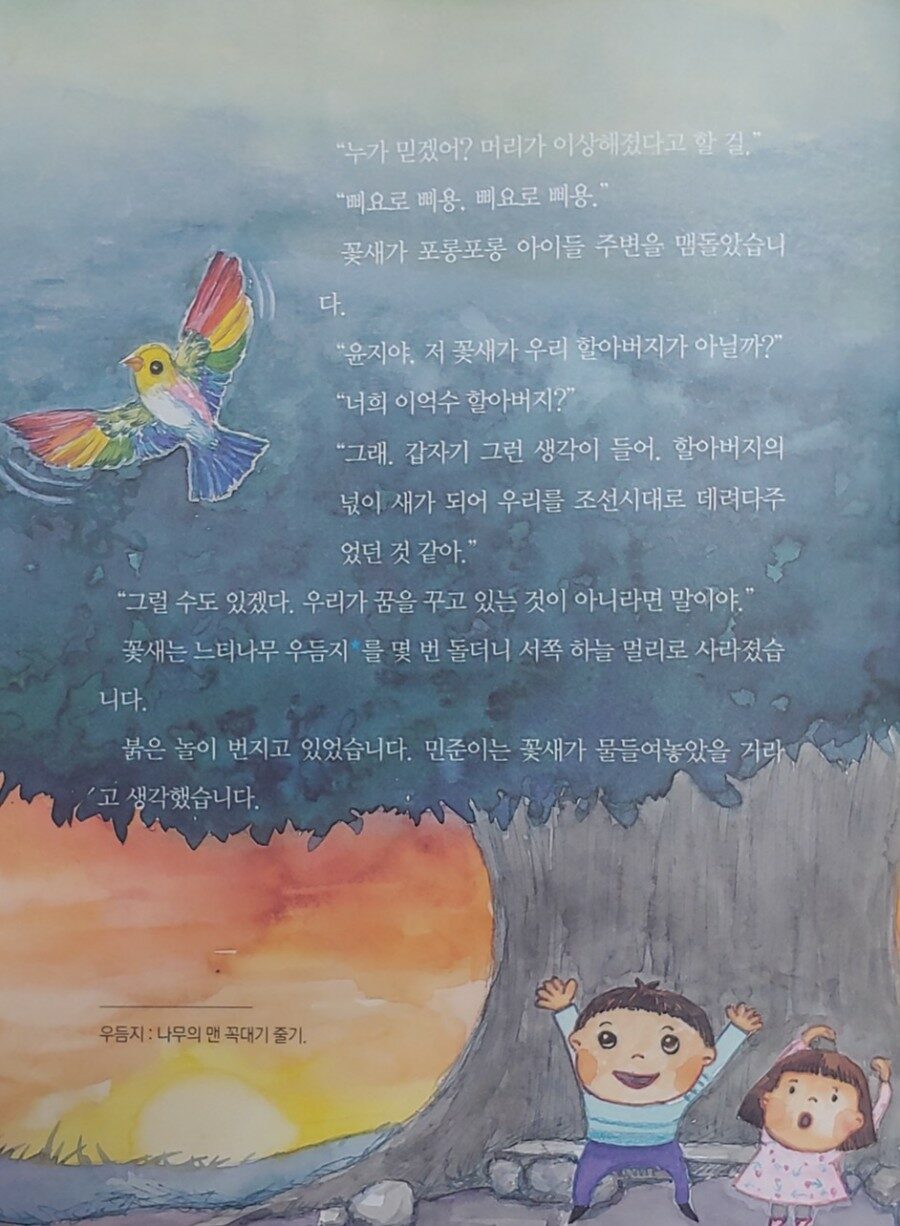 “누가 믿겠어? 머리가 이상해졌다고 할 걸.”
“삐요로 삐용. 삐요로 삐용.”
꽃새가 포롱포롱 아이들 주변을 맴돌았습니
다.
“윤지야. 저 꽃새가 우리 할아버지가 아닐까?”
“너희 이억수 할아버지?”
“그래. 갑자기 그런 생각이 들어. 할아버지의
넋이 새가 되어 우리를 조선시대로 데려다주
었던 것 같아.”
“그럴 수도 있겠다. 우리가 꿈을 꾸고 있는 것이 아니라면 말이야.”
꽃새는 느티나무 우듬지*를 몇 번 돌더니 서쪽 하늘 멀리로 사라졌습
니다.
붉은 놀이 번지고 있었습니다. 민준이는 꽃새가 물들여놓았을 거라
고 생각했습니다.
우듬지 : 나무의 맨 꼭대기 줄기.